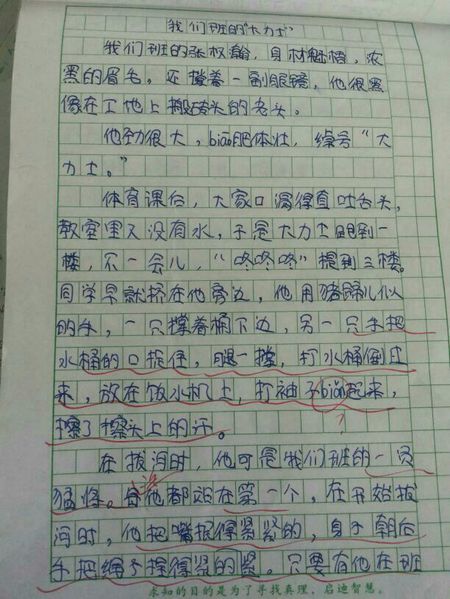 我们班的"大力士"
我们班的张权瀚,身材魁梧,浓
黑的眉毛,还撑着一副眼镜,他很黑
像在工地上搬砖头的老头。
他劲很大,biāo肥体壮,绰号"大
力士。"
体育课后,大家口渴得直吐舌头,
教室里又没有水,于是大力士跑到一
楼,不一会儿,"咚咚咚"提到三楼。
同学早就挤在他旁边,他用猪蹄儿似
的手,一只撑着桶下边,另一只手把
水桶的口捉住,腿一撑,把水桶倒过
来,放在饮水机上,把袖子biǎn起来,
擦了擦头上的汗。
在拔河时,他可是我们班的一员
猛将。每次他都站在第一个,在开始拔
河时,他把嘴抿得紧紧的,身子朝后
手把绳子握得紧的紧。只要有他在班
求知的目的是为了寻找真理,启迪智慧。